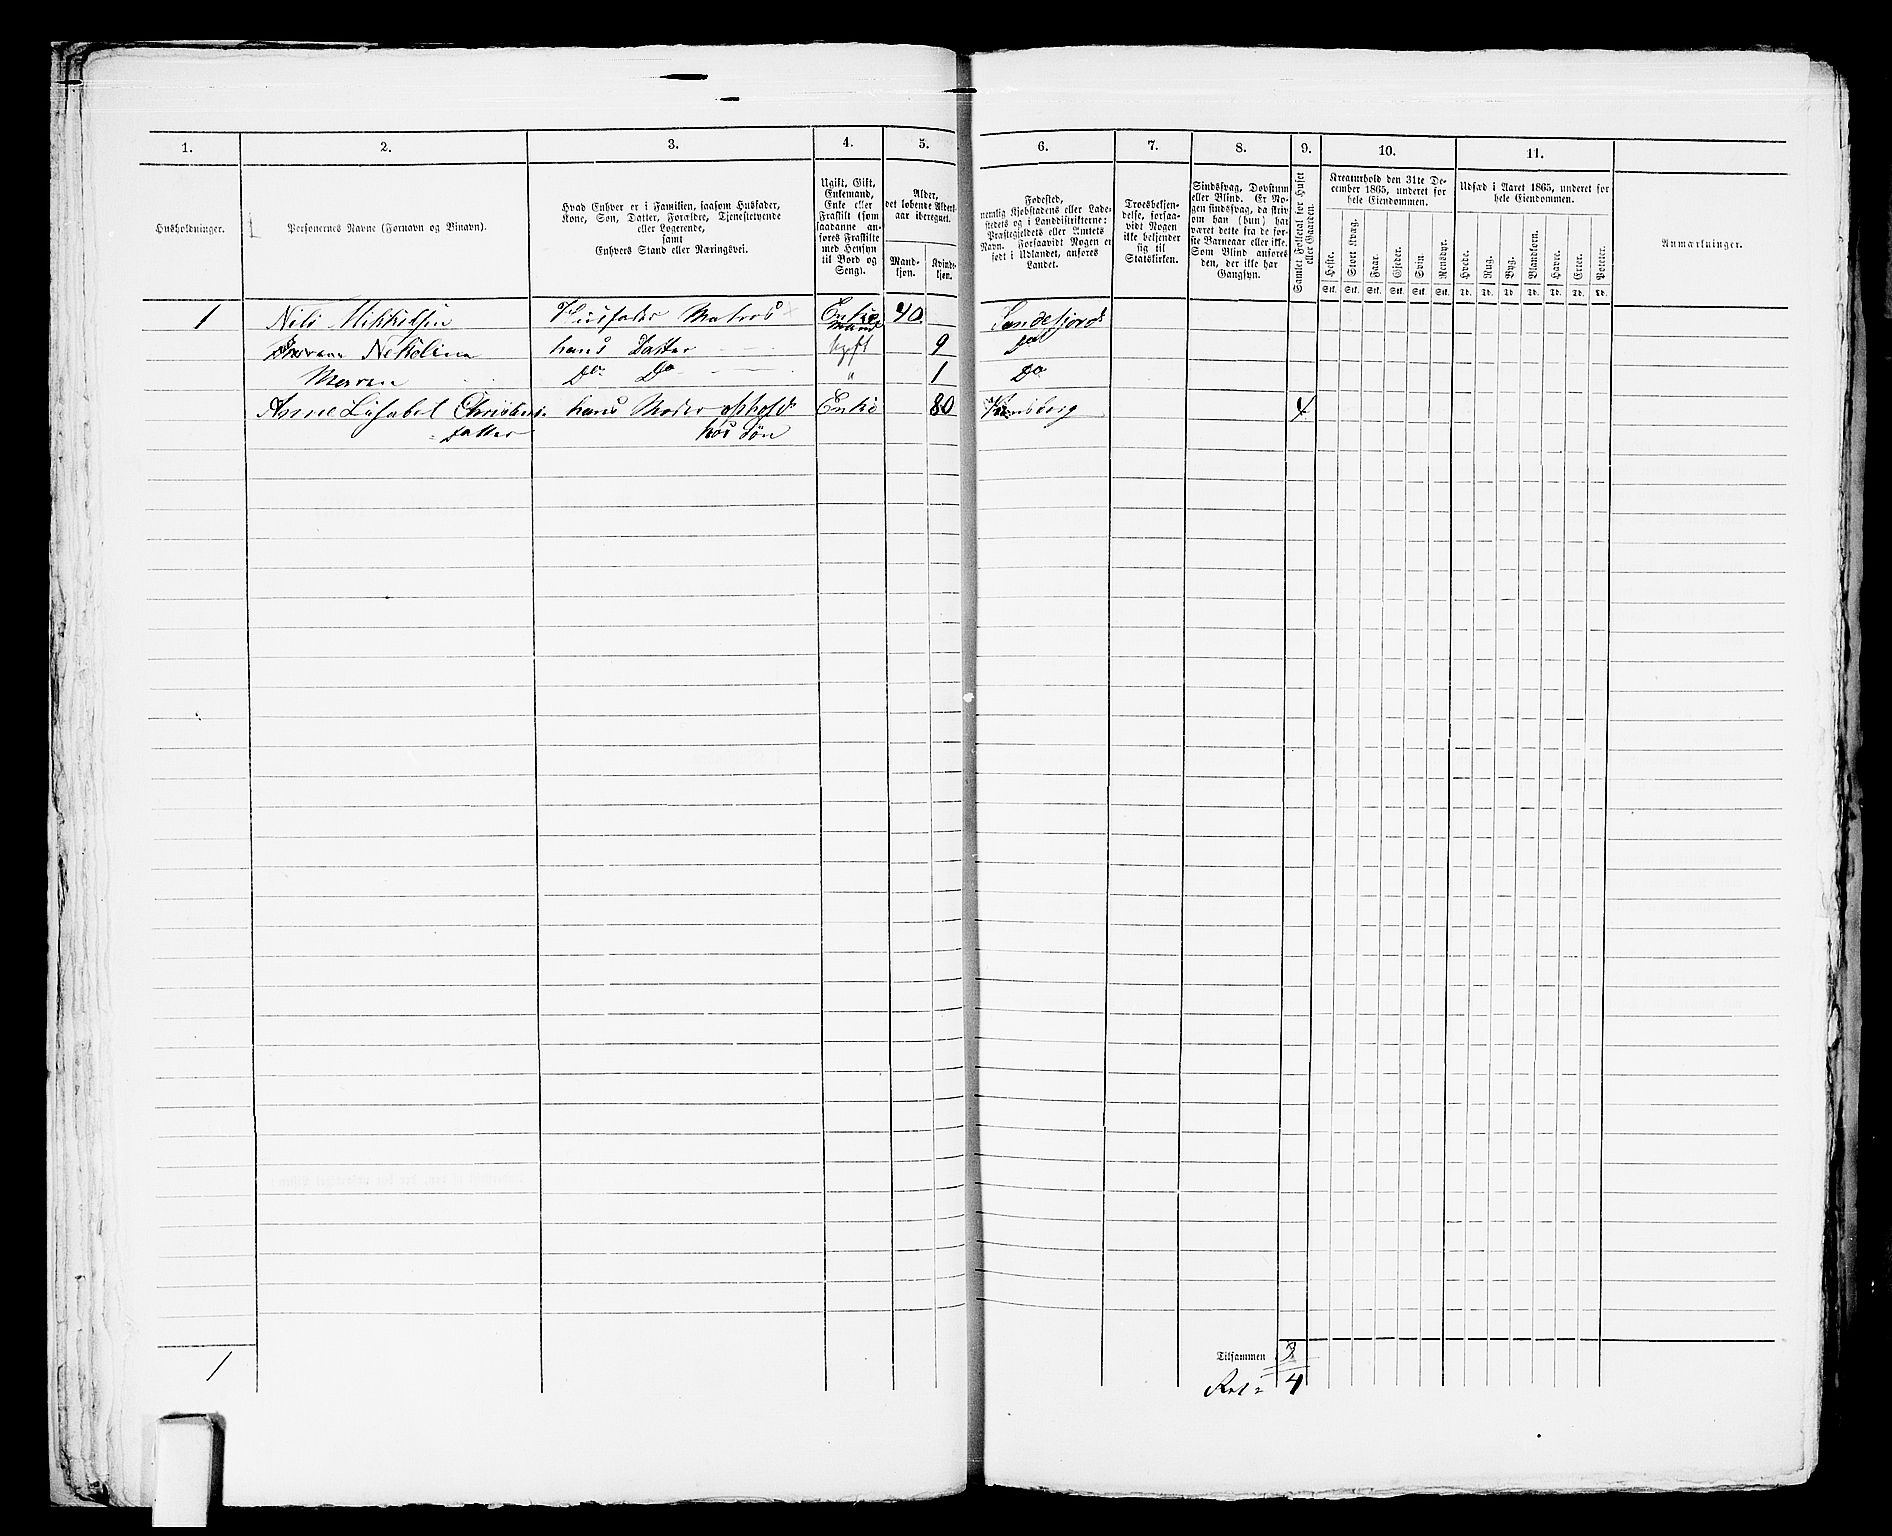 1. 2. 3. 4. 5. 6. 7. 8. 9. 10. 11.
Husholdninger.
Personernes Navne (Fornavn og Binavn).
Hvad Enhver er i Familien, saasom Husfader,
Kone, Søn, Datter, Forældre, Tjenestetyende
eller Logerende,
samt
Enhvers Stand eller Næringsvei.
Ugift, Gift,
Enkemand,
Enke eller
Fraskilt (som
saadanne an-
føres Fraskilte
med Hensyn
til Bord og
Seng).
Alder,
det løbende Alders-
aar iberegnet.
Mand-
kjøn.
Kvinde-
kjøn.
Fødested,
nemlig Kjøbstadens eller Lade-
stedets og i Landdistrikterne:
Præstegjeldets eller Amtets
Navn. Forsaavidt Nogen er
født i Udlandet, anføres
Landet.
Troesbekjen-
delse, forsaa-
vidt Nogen
ikke bekjender
sig til
Statskirken.
Sindssvag, Døvstum
eller Blind. Er No-
gen sindssvag, da skriv
om han (hun) har
været dette fra de før-
ste Barneaar eller ikke.
Som Blind anføres
den, der ikke har
Gangsyn.
Samlet Folketal for Huset
eller Gaarden.
Kreaturhold den 31te De-
cember 1865, underet for
hele Eiendommen.
Heste. Stort Kvæg. Faar. Gjeder. Svin. Rensdyr.
Stk. Stk. Stk. Stk. Stk. Stk.
Udsæd i Aaret 1865, underet for
hele Eiendommen.
Hvede. Rug. Byg. Blandkorn. Havre. Erter. Poteter.
Td. Td. Td. Td. Td. Td. Td.
Anmærkninger.
1 Nils Mikkelsen Husfader Matros Enke 40 Sandefjord
mand
Nikoline hans Datter ugift 9 Do
Maren Do Do " 1 Do
Anne Lisabet Christens hans Moder ophold Enke 80 4
datter hos Søn
1
Tilsammen 3
4